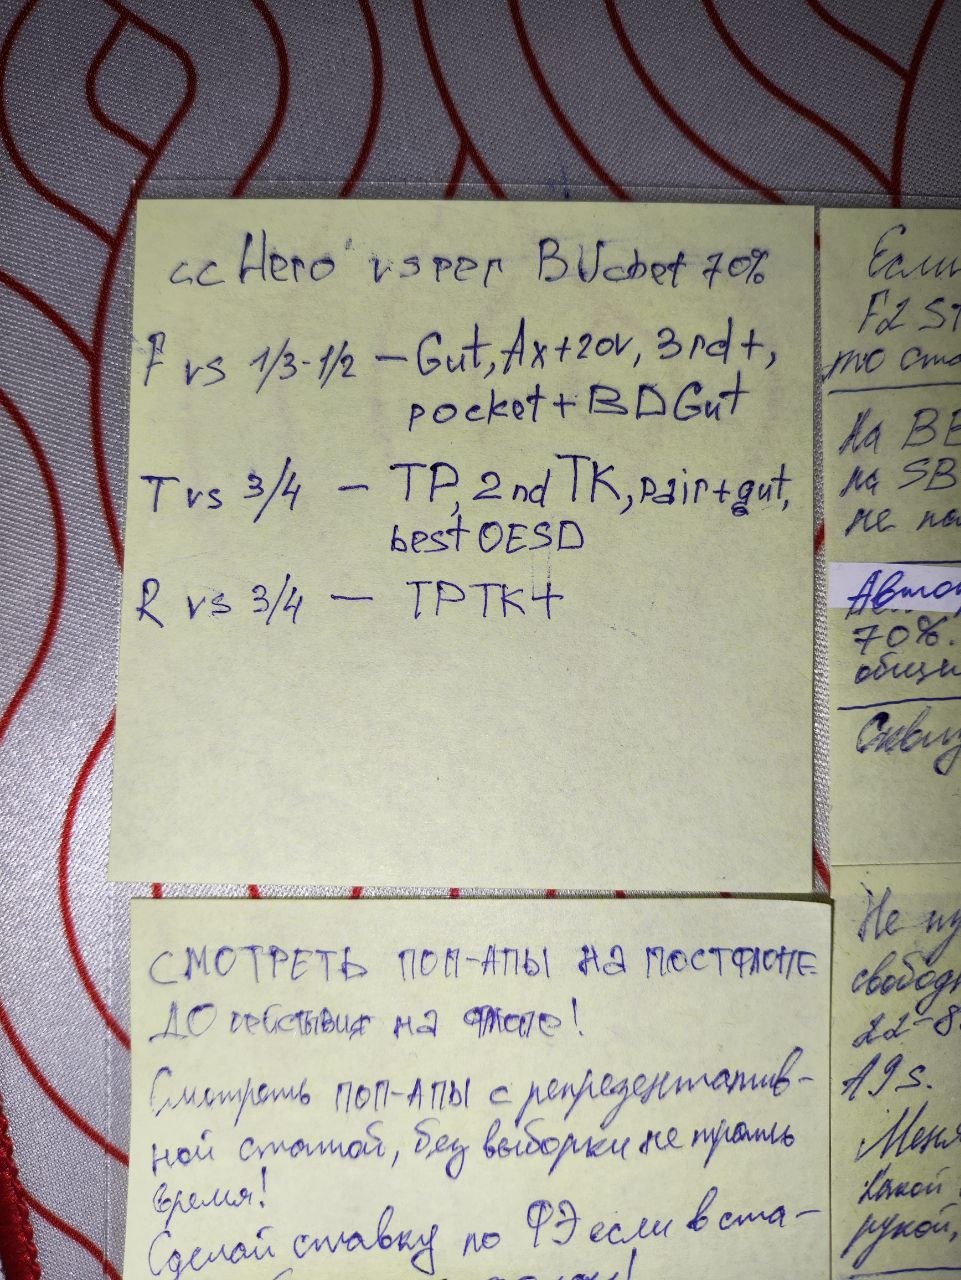 cc Hero vs рег BU cbet 70%
F vs 1/3-1/2 — Gut, Ax+2ov, 3rd+,
pocket + BD Gut
T vs 3/4 — TP, 2nd TK, pair+gut,
best OESD
R vs 3/4 — TPTK+
СМОТРЕТЬ ПОП-АПЫ НА ПОСТФЛОПЕ
ДО действия на флопе!
Смотреть ПОП-АПЫ с репрезентатив-
ной статой, без выборки не трать
время!
Сделай ставку по ФЭ если в ста-
Если
F2 ST
то ста
На BB
на SB
не по
Авто
70%.
общи
Сквиз
Не пу
свобод
22-8
A9s.
Меня
какой
рукой,